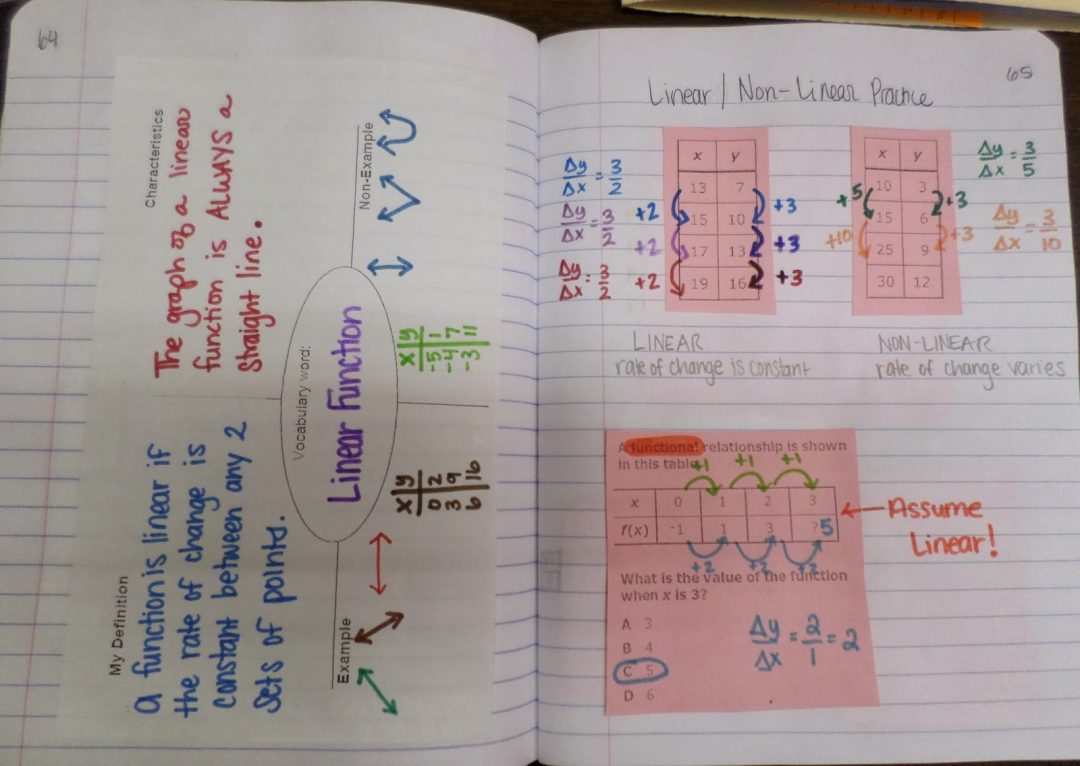 64
My Definition
A function is linear if
the rate of change is
constant between any 2
sets of points.
Characteristics
The graph of a linear
function is ALWAYS a
straight line.
Vocabulary word:
Linear Function
Example
x y
0 2
3 9
6 16
Non-Example
x y
-5 1
-4 7
-3 11
65
Linear / Non-Linear Practice
Δy/Δx = 3/2
Δy/Δx = 3/2
Δy/Δx = 3/2
+2
+2
+2
x y
13 7
15 10
17 13
19 16
+3
+3
+3
LINEAR
rate of change is constant
+5
+10
x y
10 3
15 6
25 9
30 12
+3
+3
Δy/Δx = 3/5
Δy/Δx = 3/10
NON-LINEAR
rate of change varies
A functional relationship is shown
in this table
+1 +1 +1
x 0 1 2 3
f(x) -1 1 3 ? 5
+2 +2 +2
Assume
Linear!
What is the value of the function
when x is 3?
A 3
B 4
C 5
D 6
Δy/Δx = 2/1 = 2